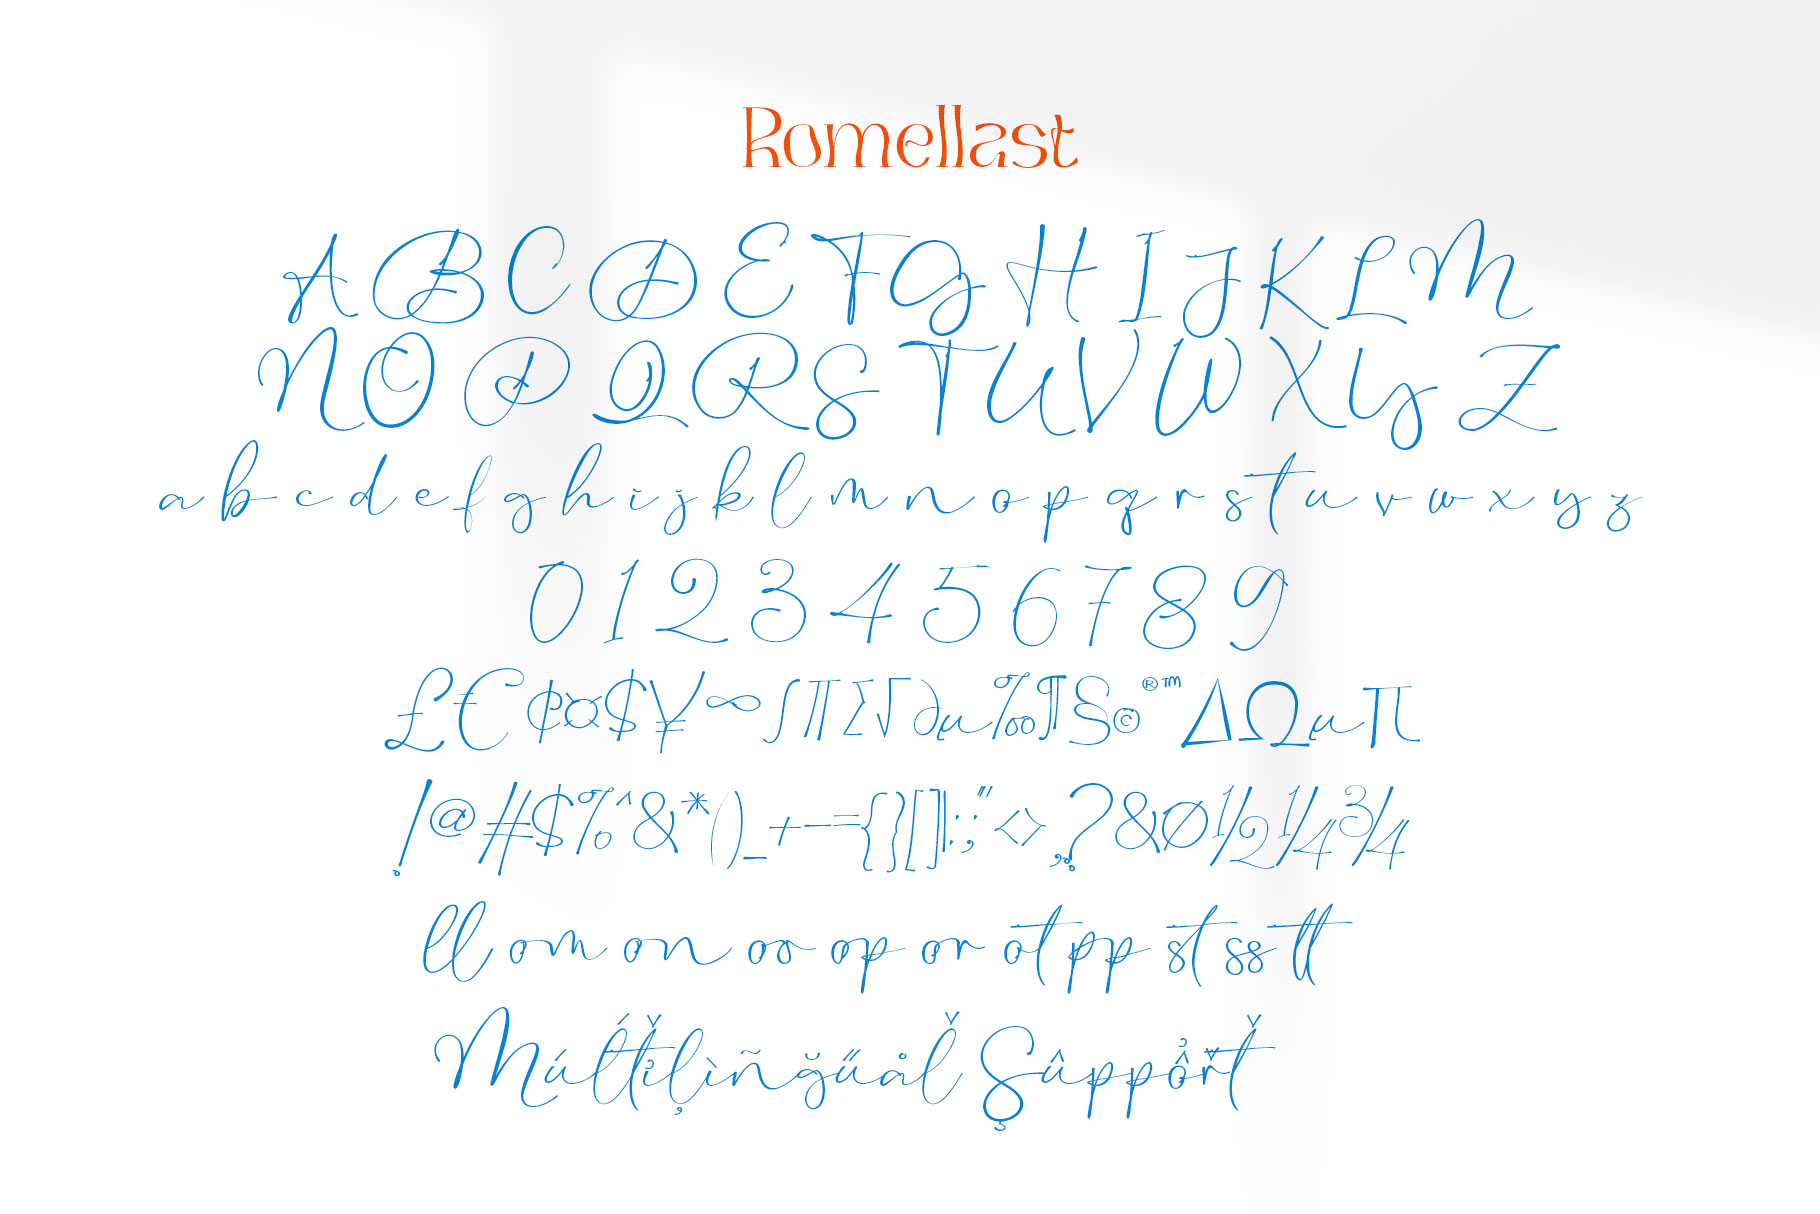 Romellast
A B C D E F G H I J K L M
N O P Q R S T U V W X Y Z
a b c d e f g h i j k l m n o p q r s t u v w x y z
0 1 2 3 4 5 6 7 8 9
£€¢¤$¥∞∫∏∑√∂µ‰¶§©®™∆Ωµπ
!@#$%^&*()_+-={}[]|:;"<>,.?&Ø½¼¾
ll om on oo op or ot pp st ss tt
Múĺťỉļìñğűåľ Şûppổřť